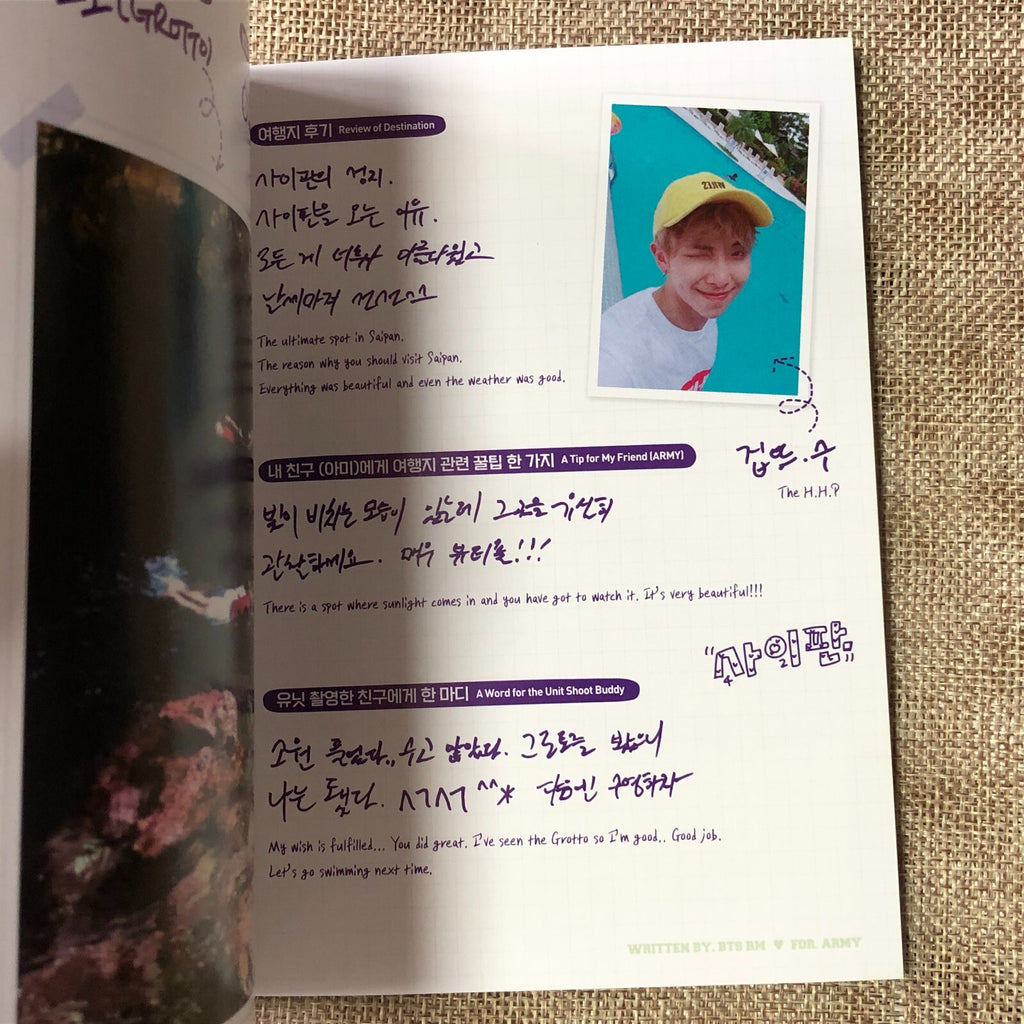 (GROTTO)
여행지 후기 Review of Destination
사이판의 성지.
사이판을 오는 이유.
모든 게 너무나 아름다웠고
날씨마저 선선스
The ultimate spot in Saipan.
The reason why you should visit Saipan.
Everything was beautiful and even the weather was good.
겁쁘.수
The H.H.P
내 친구 (아미)에게 여행지 관련 꿀팁 한 가지 A Tip for My Friend (ARMY)
빛이 비치는 모습이 있는데 그곳을 유심히
관찰하세요. 매우 뷰티풀!!!
There is a spot where sunlight comes in and you have got to watch it. It's very beautiful!!!
"사이판"
유닛 촬영한 친구에게 한 마디 A Word for the Unit Shoot Buddy
소원 풀었다.. 수고 많았다. 그로토를 봤으니
나는 됐다. ㅅㄱㅅㄱ ^^* 다음엔 수영하자
My wish is fulfilled... You did great. I've seen the Grotto so I'm good.. Good job.
Let's go swimming next time.
WRITTEN BY. BTS RM ♥ FOR. ARMY